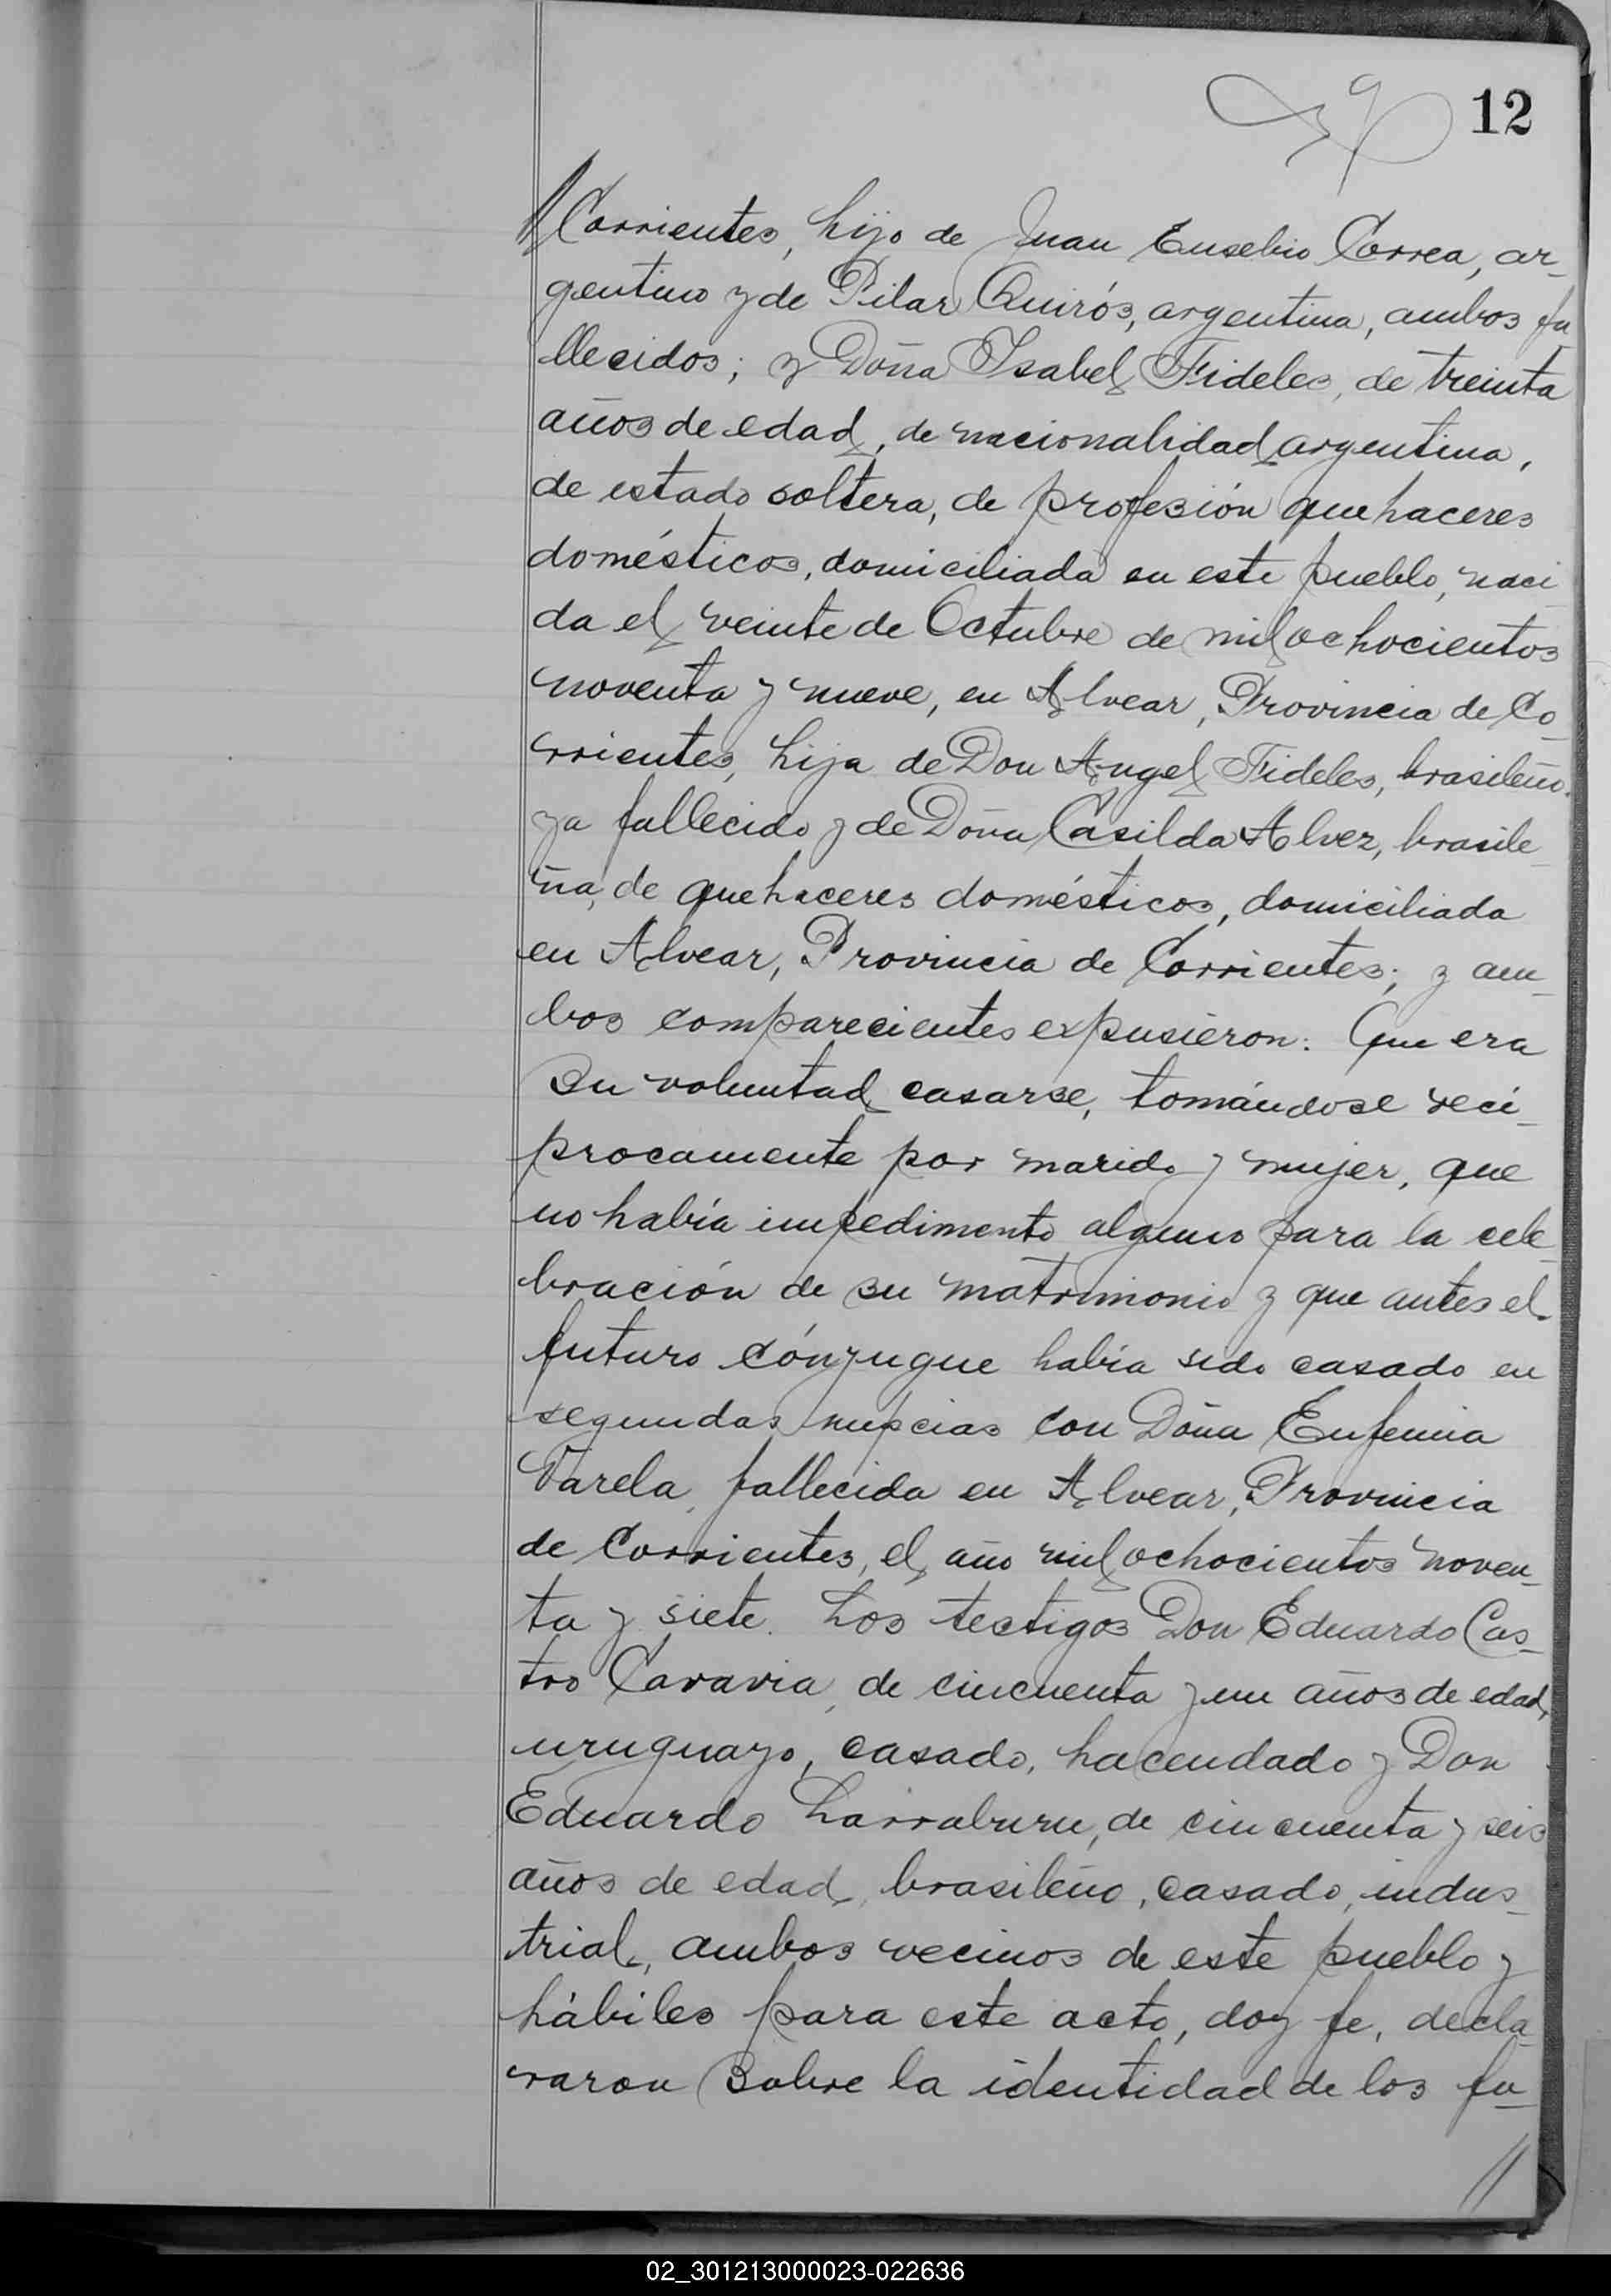 12
Corrientes, hijo de Juan Eusebio Correa, ar-
gentino y de Pilar Quirós, argentina, ambos fa
llecidos; y Doña Isabel Fideles, de treinta
años de edad, de nacionalidad argentina,
de estado soltera, de profesión quehaceres
domésticos, domiciliada en este pueblo, naci
da el veinte de Octubre de mil ochocientos
noventa y nueve, en Alvear, Provincia de Co-
rrientes, hija de Don Angel Fideles, brasileño.
ya fallecido y de Doña Casilda Alvez, brasile-
ña, de quehaceres domésticos, domiciliada
en Alvear, Provincia de Corrientes; y am-
bos comparecientes expusieron: Que era
su voluntad casarse, tomándose recí-
procamente por marido y mujer, que
no había impedimento alguno para la cele-
bración de su matrimonio y que antes el
futuro cónyugue había sido casado en
segundas nupcias con Doña Eufemia
Varela, fallecida en Alvear, Provincia
de Corrientes, el año mil ochocientos noven-
ta y siete. Los testigos Don Eduardo Cas-
tro Caravia, de cincuenta y un años de edad,
uruguayo, casado, hacendado y Don
Eduardo Larraburu, de cincuenta y seis
años de edad, brasileño, casado, indus-
trial, ambos vecinos de este pueblo y
hábiles para este acto, doy fe, decla-
raron sobre la identidad de los fu-
02_301213000023-022636